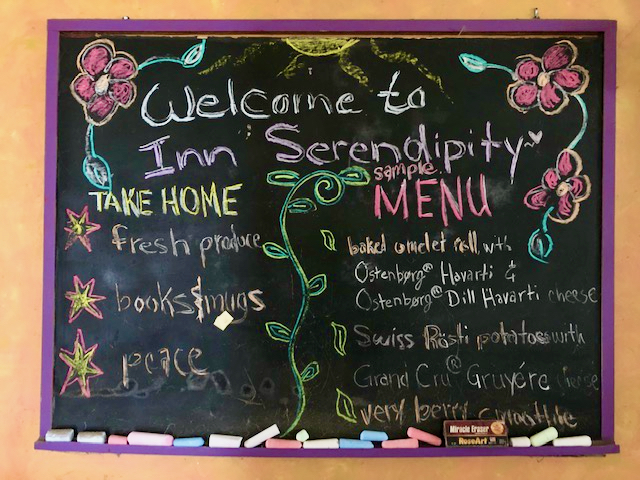 Welcome to
Inn Serendipity
TAKE HOME
fresh produce
books & mugs
peace
sample
MENU
baked omelet roll, with
Ostenbørg® Havarti &
Ostenbørg® Dill Havarti cheese
Swiss Rösti potatoes with
Grand Cru® Gruyére cheese
very berry smoothie
Miracle Eraser
RoseArt